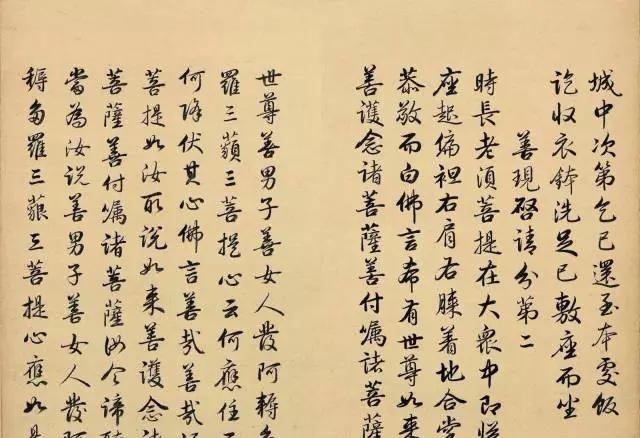 城中次第乞已還至本處飯
訖收衣鉢洗足已敷座而坐
善現啓請分第二
時長老須菩提在大衆中即從
座起偏袒右肩右膝著地合掌
恭敬而白佛言希有世尊如來
善護念諸菩薩善付囑諸菩薩
世尊善男子善女人發阿耨多
羅三藐三菩提心云何應住
何降伏其心佛言善哉善哉
菩提如汝所說如來善護念諸
菩薩善付囑諸菩薩汝今諦聽
當為汝說善男子善女人發阿
耨多羅三藐三菩提心應如是